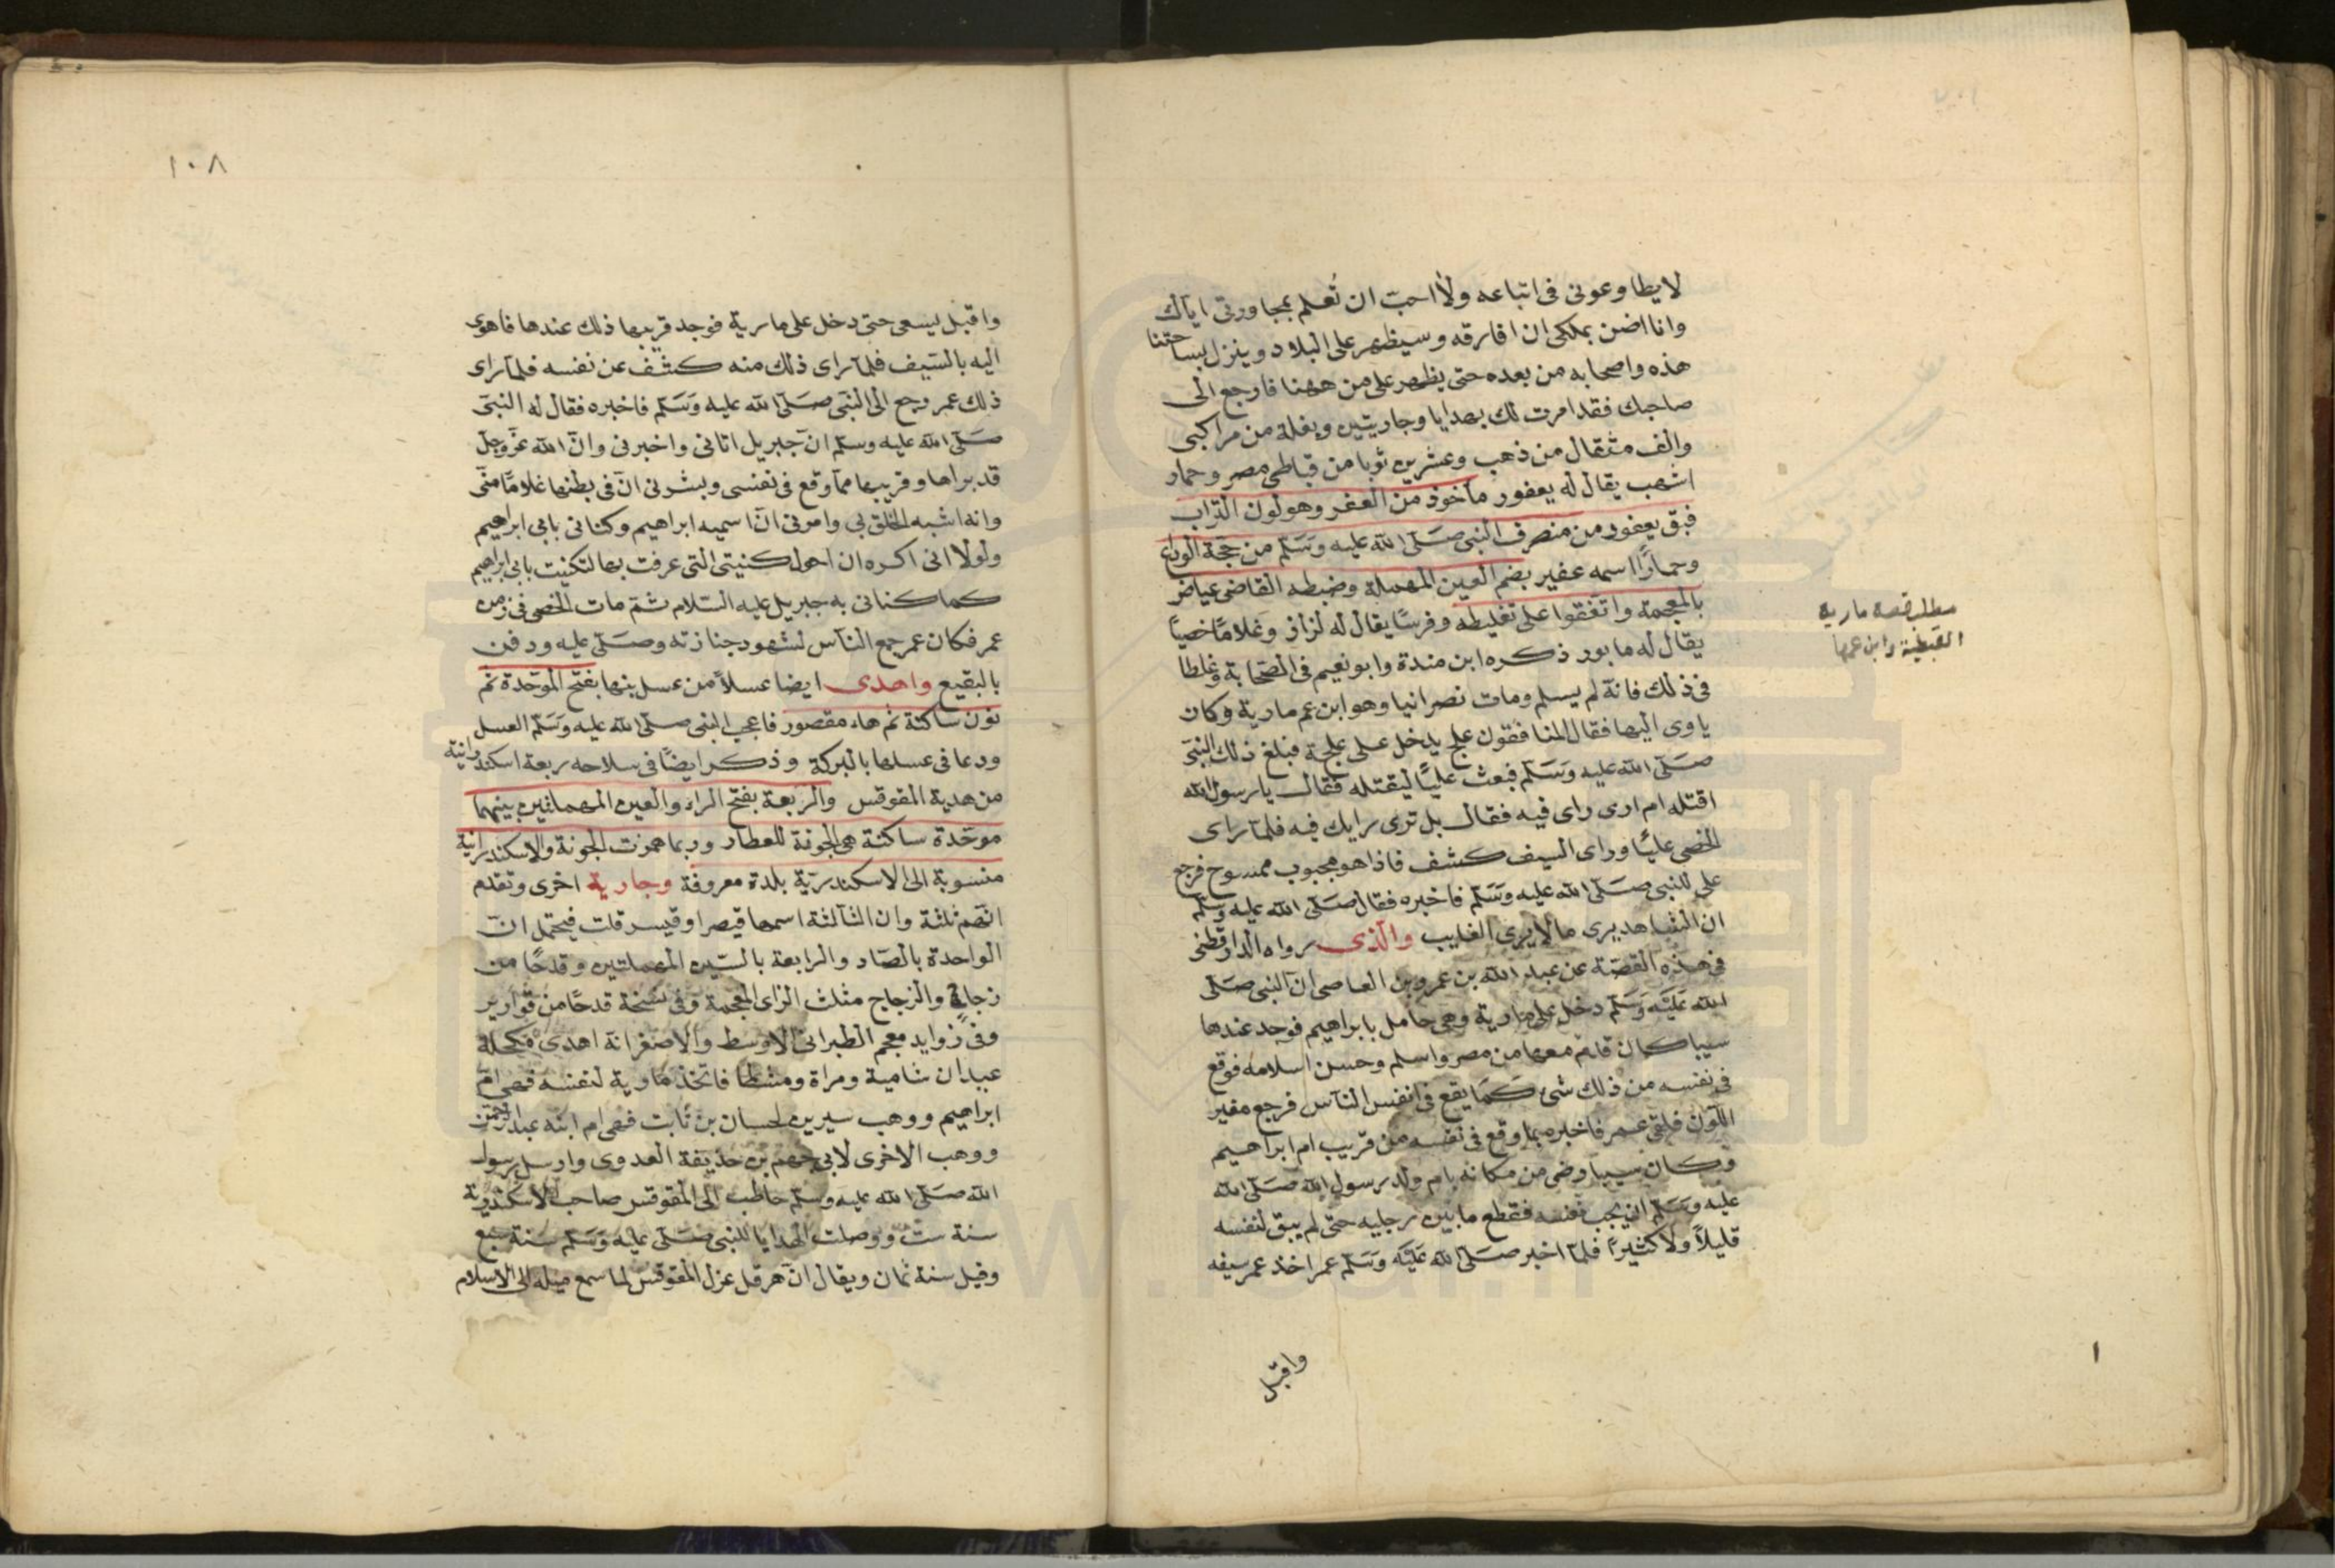 لا يطاوعوني في اتباعه ولا احب ان تُعلم بمجاورتي اياك
وانا اضن بملكي ان افارقه وسيظهر على البلاد وينزل بساحتنا
هذه واصحابه من بعده حتى يظهر على من ههنا فارجع الى
صاحبك فقد امرت لك بهدايا وجاريتين وبغلة من مراكبي
والف مثقال من ذهب وعشرين ثوبا من قباطي مصر وحمار
اشهب يقال له يعفور مأخوذ من العفر وهو لون التراب
فبق يعفور من منصرف النبي صَلّى الله عليه وَسَلّم من حجّة الوداع
وحمارًا اسمه عفير بضم العين المهملة وضبطه القاضى عياض
بالمعجمة واتّفقوا على تغليطه وفرسًا يقال له لزاز وغلامًا خصيًا
يقال له مابور ذكره ابن مندة وابو نعيم في الصّحابة وغلطا
في ذلك فانّه لم يسلم ومات نصرانيا وهو ابن عم مارية وكان
ياوى اليها فقال المنافقون علج يدخل على علجة فبلغ ذلك النبيّ
صَلّى الله عليه وَسَلّم فبعث عليًّا ليقتله فقال يا رسول الله
اقتله ام ارى راى فيه فقال بل ترى رايك فيه فلمّا راى
الخصى عليًّا وراى السيف كشف فاذا هو مجبوب ممسوح فرجع
على للنبي صَلّى الله عليه وَسَلّم فاخبره فقال صَلّى الله عليه وسلّم
ان الشاهد يرى ما لا يرى الغايب والّذى رواه الدارقطنى
في هذه القصّة عن عبد الله بن عمرو بن العاصى انّ النبي صَلّى
الله عَلَيْه وَسَلّم دخل على مارية وهي حامل بابراهيم فوجد عندها
سيبا كان قدم معها من مصر واسلم وحسن اسلامه فوقع
في نفسه من ذلك شئ كما يقع في انفس النّاس فرجع مغير
اللّون فلقى عمر فاخبره بما وقع في نفسه من قريب ام ابراهيم
وكان سيبا رضى من مكانه بام ولد رسول الله صَلّى الله
عليه وسَلّم ان يجب نفسه فقطع ما بين رجليه حتى لم يبق لنفسه
قليلاً ولا كثيرًا فلمّا اخبر صَلّى الله عَلَيْه وَسَلّم عمر اخذ عمر سيفه
واقبل
مطلب قصة مارية
القبطية وابن عمها
١
١٠٨
واقبل يسعى حتى دخل على مارية فوجد قريبها ذلك عندها فاهوى
اليه بالسّيف فلمّا راى ذلك منه كشف عن نفسه فلمّا راى
ذلك عمر رجع الى النبيّ صَلّى الله عليه وَسَلّم فاخبره فقال له النبيّ
صَلّى الله عليه وسلّم انّ جبريل اتانى واخبرنى وانّ الله عزّ وجلّ
قد براها وقريبها ممّا وقع في نفسى وبشرنى انّ في بطنها غلامًا منّى
وانه اشبه الخلق بي وامرنى انّ اسميه ابراهيم وكنانى بابى ابراهيم
ولولا انى اكره ان احول كنيتى التى عرفت بها لتكنيت بابى ابراهيم
كما كنانى به جبريل عليه السّلام ثمّ مات الخصى في زمن
عمر فكان عمر جمع النّاس لشهود جنازته وصَلّى عليه ودفن
بالبقيع واهدى ايضا عسلاً من عسل بنها بفتح الموحّدة ثم
نون ساكنة ثم هاء مقصور فاعجب النبي صلّى الله عليه وَسَلّم العسل
ودعا في عسلها بالبركة وذكر ايضًا في سلاحه ربعة اسكندرانية
من هدية المقوقس والرّبعة بفتح الراء والعين المهملتين بينهما
موحّدة ساكنة هى الجونة للعطار وربما همزت الجونة والاسكندرانية
منسوبة الى الاسكندريّة بلدة معروفة وجارية اخرى وتقدم
انّهم ثلثة وان الثالثة اسمها قيصر او قيسر قلت فيحتمل انّ
الواحدة بالصّاد والرابعة بالسّين المهملتين وقدحًا من
زجاج والزجاج مثلث الزاى المعجمة وفي نسخة قدحًا من قوارير
وفي زوايد معجم الطبرانى الاوسط والاصغر انه اهدى مكحلة
عيدان شامية ومراة ومشطا فاتخذ مارية لنفسه فهى امّ
ابراهيم ووهب سيرين لحسان بن ثابت فهى ام ابنه عبد الرحمن
ووهب الاخرى لابي جهم بن حذيفة العدوى وارسل رسول
الله صَلّى الله عليه وسلّم حاطب الى المقوقس صاحب الاسكندرية
سنة ستّ ووصلت الهدايا للنبي صَلّى عليه وَسَلّم سنة سبع
وقيل سنة ثمان ويقال انّ هرقل عزل المقوقس لما سمع ميله الى الاسلام